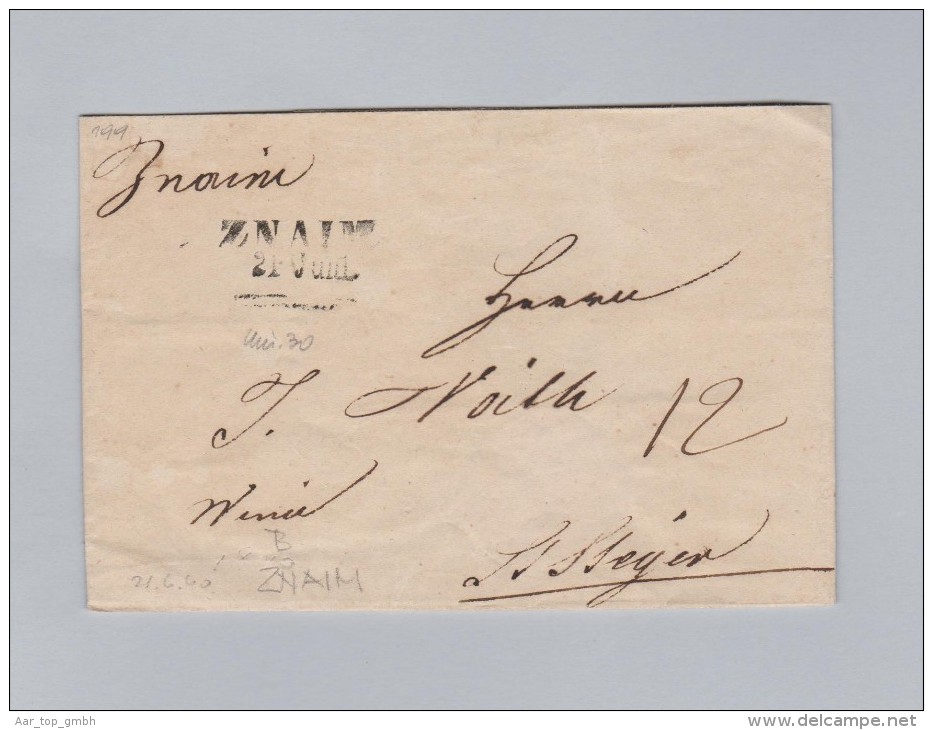 199
Znaim
ZNAIM
21 Juni
Herrn
J. Voith
12
St Steyer
B
21.6.40 ZNAIM
Aar_top_gmbh
www.delcampe.net